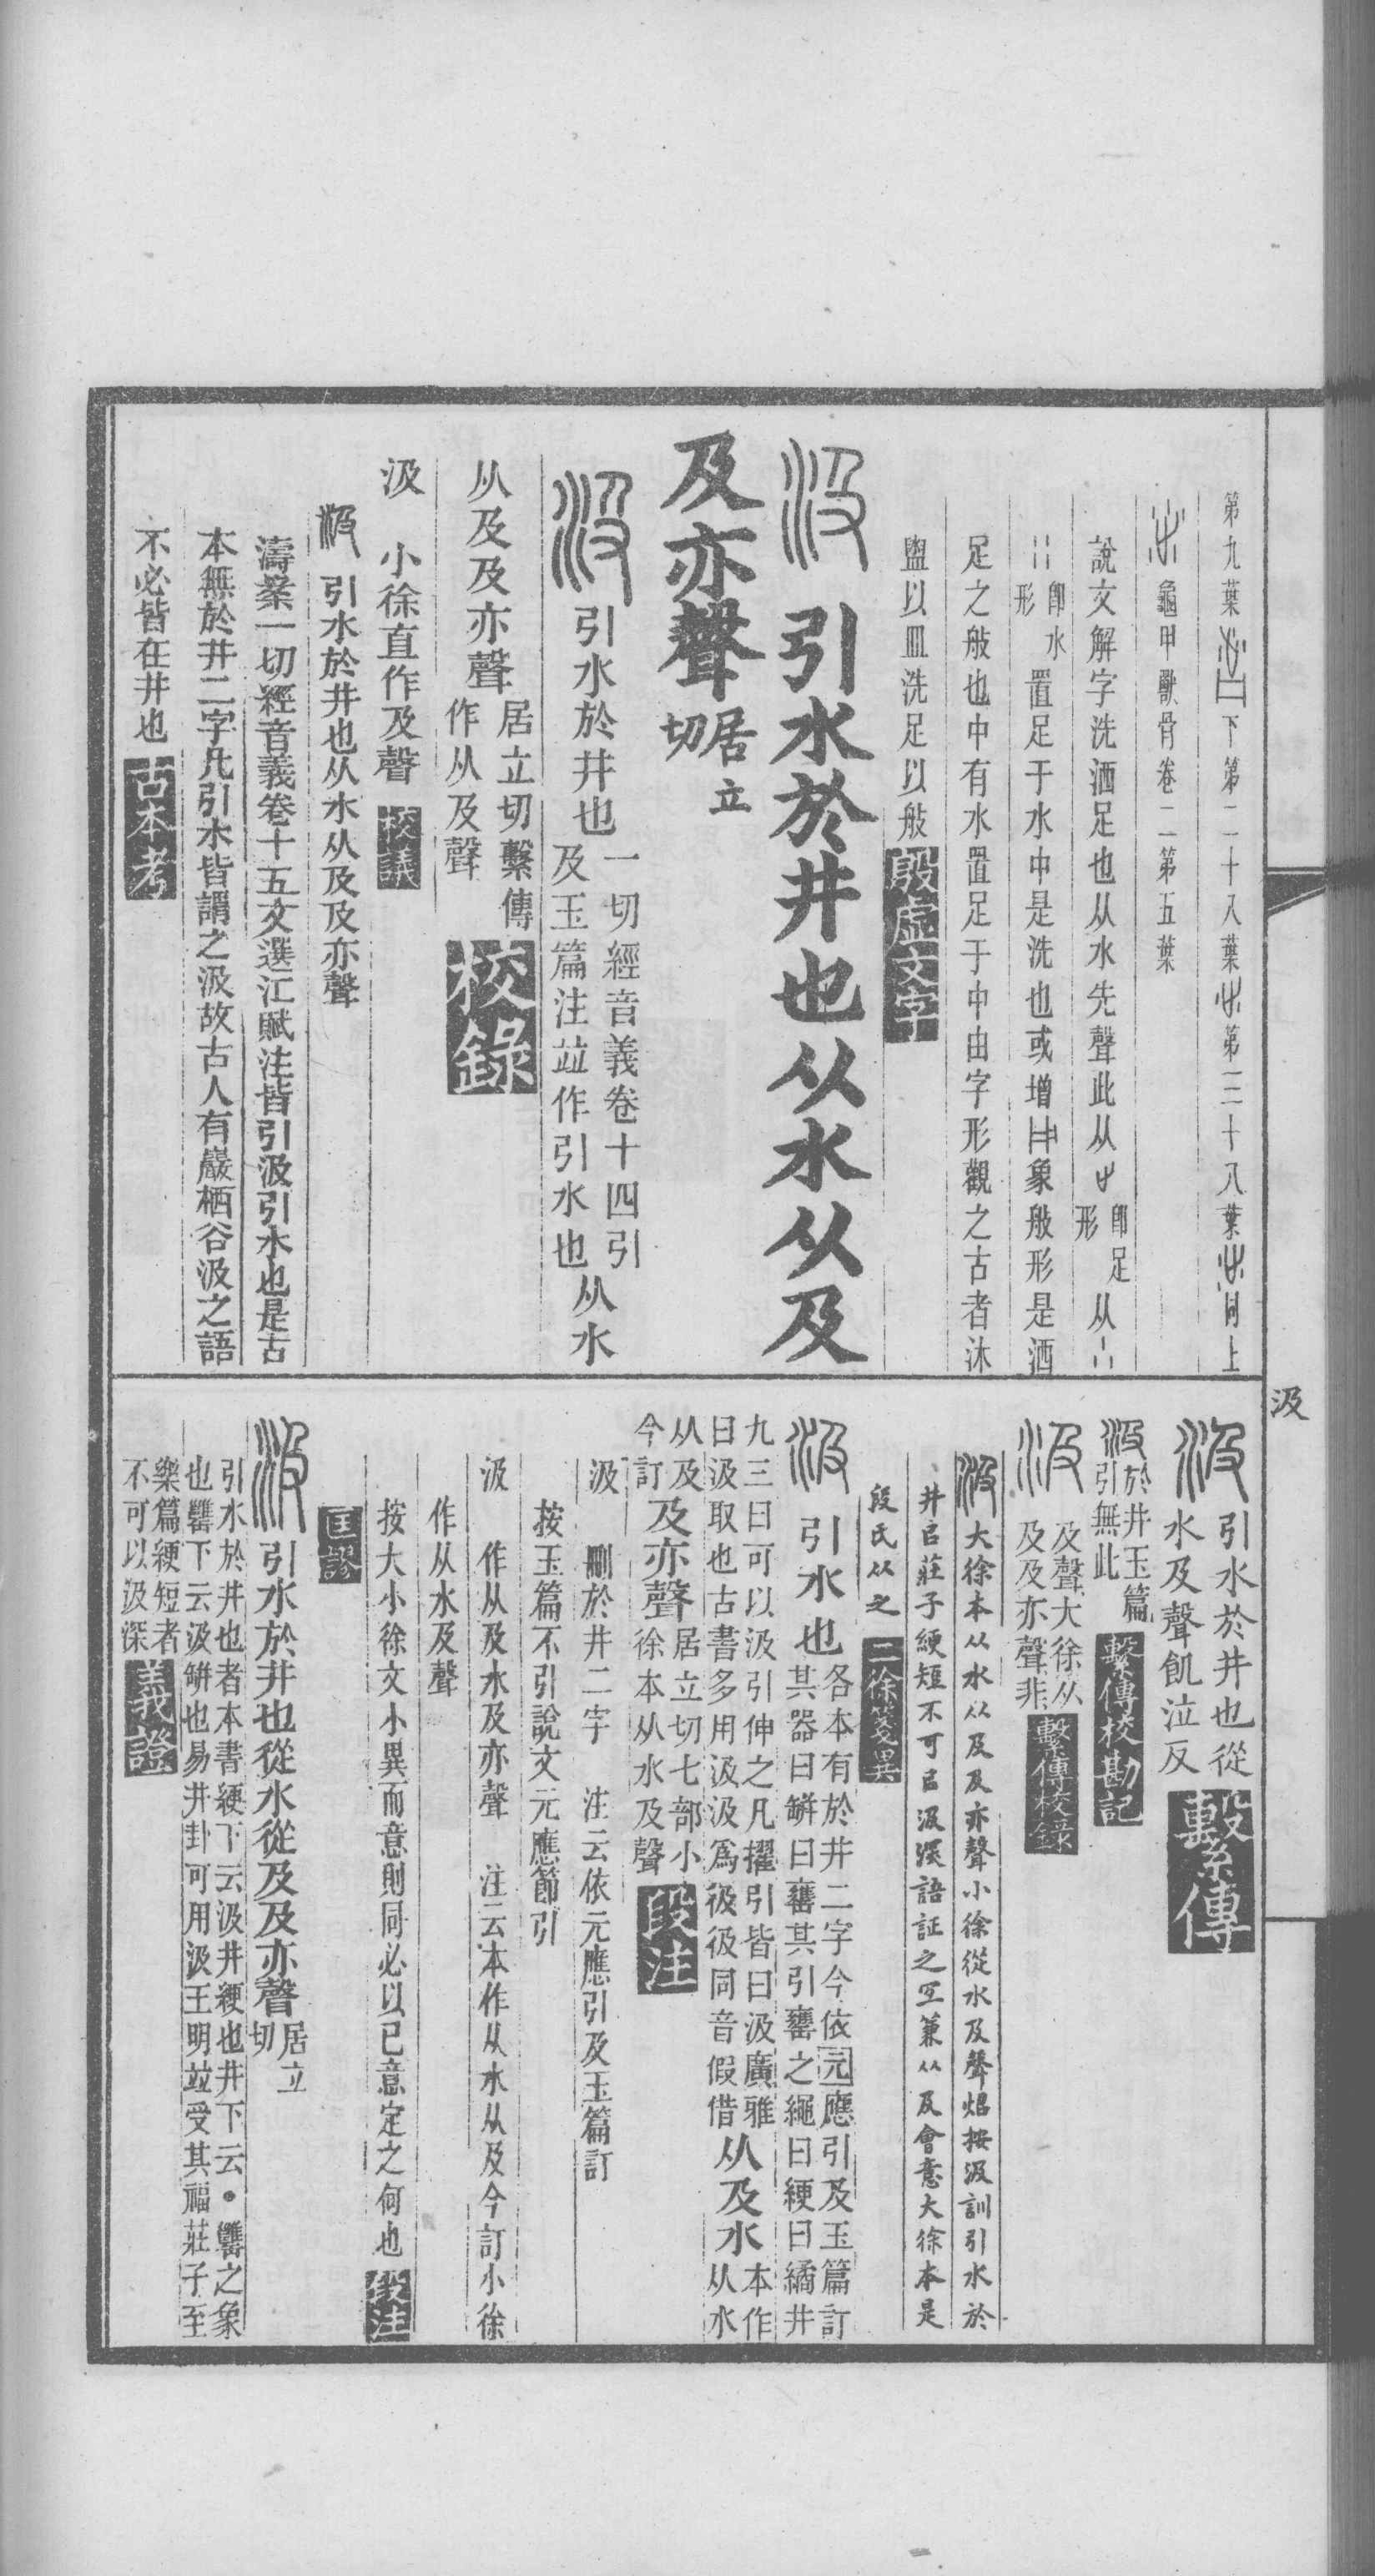 第九葉下第二十八葉第三十八葉同上
龜甲獸骨卷二第五葉
說文解字洗洒足也从水先聲此从即足形从
即水形置足于水中是洗也或增象般形是洒
足之般也中有水置足于中由字形觀之古者沐
盥以皿洗足以般殷虛文字
汲引水於井也从水从及
及亦聲居立切
汲引水於井也一切經音義卷十四引及玉篇注竝作引水也从水
从及及亦聲居立切繫傳作从及聲校錄
汲 小徐直作及聲校議
汲引水於井也从水从及及亦聲
濤案一切經音義卷十五文選江賦注皆引汲引水也是古
本無於井二字凡引水皆謂之汲故古人有巖栖谷汲之語
不必皆在井也古本考
汲
汲引水於井也從
水及聲飢泣反繫傳
汲於井玉篇引無此繫傳校勘記
汲及聲大徐从及及亦聲非繫傳校錄
汲大徐本从水从及及亦聲小徐從水及聲炤按汲訓引水於
井㠯莊子綆短不可㠯汲深語証之宐兼从及會意大徐本是
段氏从之二徐箋異
汲引水也各本有於井二字今依元應引及玉篇訂其器曰缾曰罋其引罋之繩曰綆曰繘井
九三曰可以汲引伸之凡擢引皆曰汲廣雅曰汲取也古書多用汲汲爲彶彶同音假借从及水本作从水
从及今訂及亦聲居立切七部小徐本从水及聲段注
汲 刪於井二字 注云依元應引及玉篇訂
按玉篇不引說文元應節引
汲 作从及水及亦聲 注云本作从水从及今訂小徐
作从水及聲
按大小徐文小異而意則同必以已意定之何也段注
匡謬
汲引水於井也從水從及及亦聲居立切
引水於井也者本書綆下云汲井綆也井下云•罋之象
也罋下云汲缾也易井卦可用汲王明竝受其福莊子至
樂篇綆短者不可以汲深義證